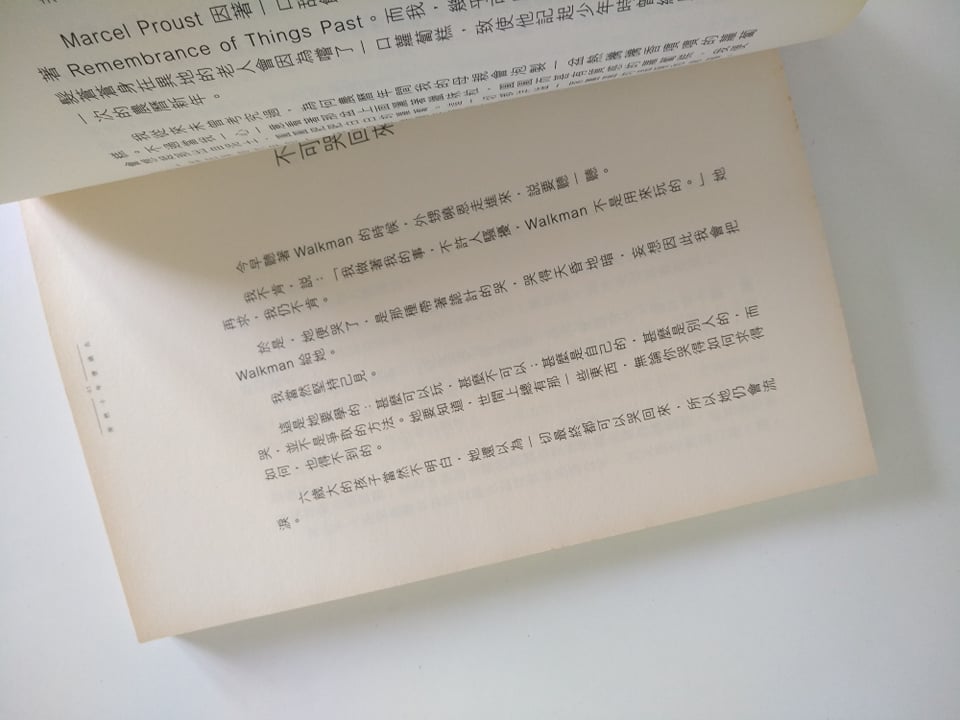 Marcel Proust 因著一口
著 Remembrance of Things Past。而我，幾乎可
鬢蒼蒼身在異地的老人會因為嚐了一口蘿蔔糕，致使他記起少年時曾經
一次的農曆新年。
我從來未曾考究過，為何農曆年間我的母親會泡製一盆熱騰騰香噴噴的蘿蔔
糕。不過當我一心一意看著那
不可哭回來
今早聽著 Walkman 的時候，外甥曉恩走進來，說要聽一聽。
我不肯，說：「我做著我的事，不許人騷擾，Walkman 不是用來玩的。」她
再求，我仍不肯。
於是，她便哭了，是那種帶著詭計的哭，哭得天昏地暗，妄想因此我會把
Walkman 給她。
我當然堅持己見。
這是她要學的：甚麼可以玩，甚麼不可以；甚麼是自己的，甚麼是別人的，而
哭，並不是爭取的方法。她要知道，世間上總有那一些東西，無論你哭得如何求得
如何，也得不到的。
六歲大的孩子當然不明白，她還以為一切最終都可以哭回來，所以她仍會流
淚。